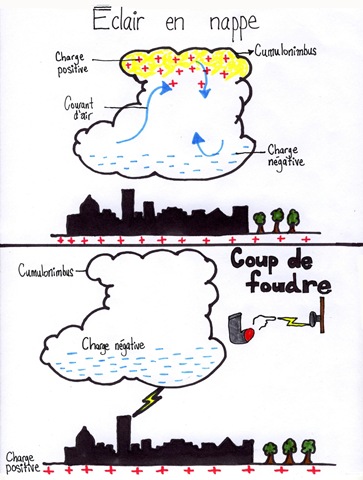 Eclair en nappe
Charge
positive
Cumulonimbus
Courant
d'air
Charge
négative
Coup de
foudre
Cumulonimbus
Charge négative
Charge
positive